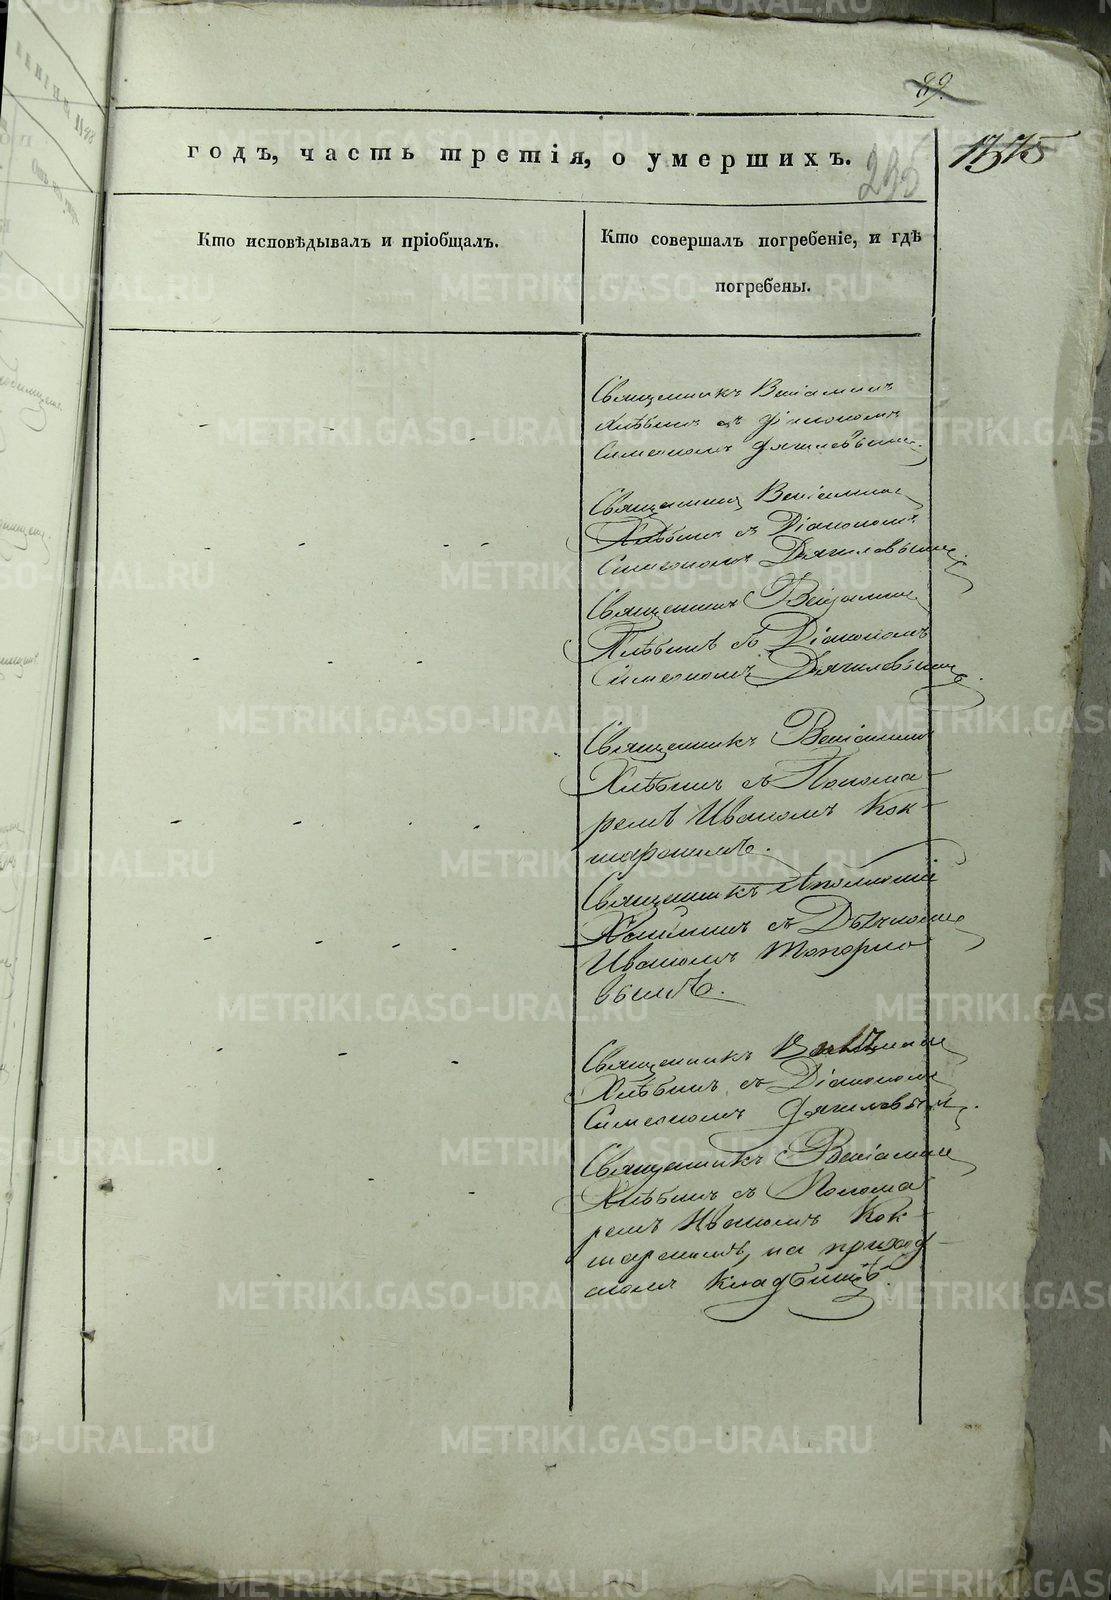 89.
годъ, часть третія, о умершихъ.
1375
235
Кто исповѣдывалъ и пріобщалъ.
Кто совершалъ погребеніе, и гдѣ
погребены.
Священникъ Веніаминъ
Хлѣбинъ съ Діакономъ
Симеономъ Дягилевымъ.
Священникъ Веніаминъ
Хлѣбинъ съ Діакономъ
Симеономъ Дягилевымъ.
Священникъ Веніаминъ
Хлѣбинъ съ Діакономъ
Симеономъ Дягилевымъ.
Священникъ Веніаминъ
Хлѣбинъ съ Понома-
ремъ Иваномъ Кок-
шаромъ.
Священникъ Аполлоній
съ Дьячкомъ
Иваномъ Топорко-
вымъ.
Священникъ Веніаминъ
Хлѣбинъ съ Діакономъ
Симеономъ Дягилевымъ.
Священникъ Веніаминъ
Хлѣбинъ съ Понома-
ремъ Иваномъ Кок-
на приход-
скомъ Кладбищѣ.
METRIKI.GASO-URAL.RU